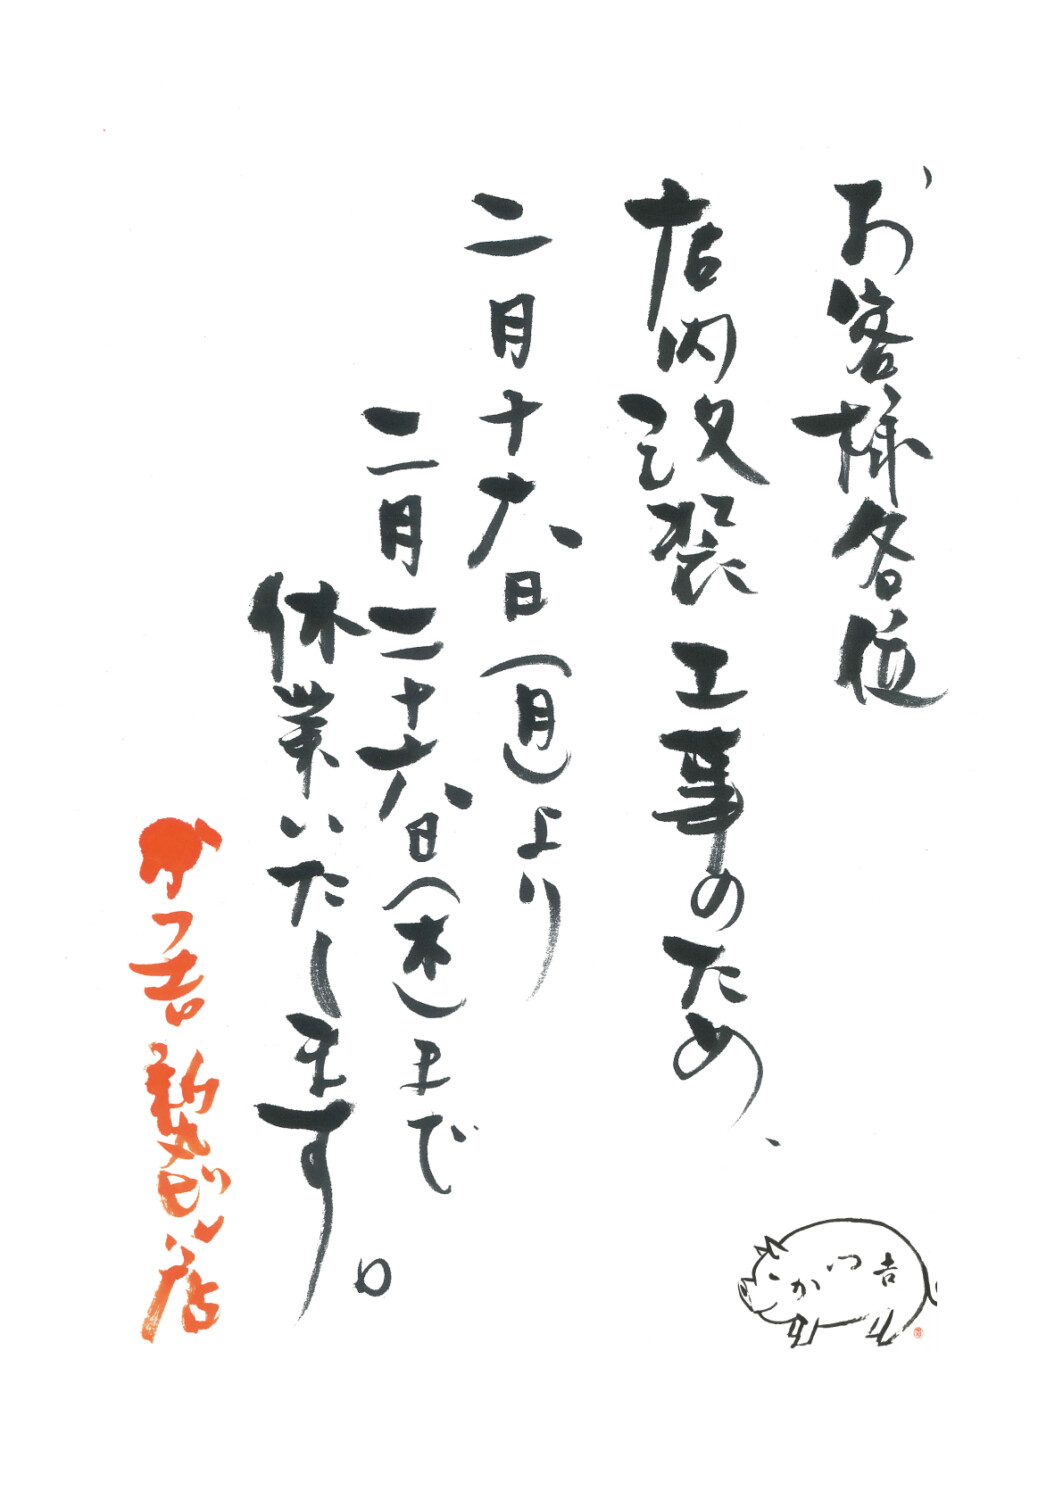 お客様各位
店内改装工事のため、
二月十六日(月)より
二月二十六日(木)まで
休業いたします。
かつ吉 新丸ビル店
かつ吉